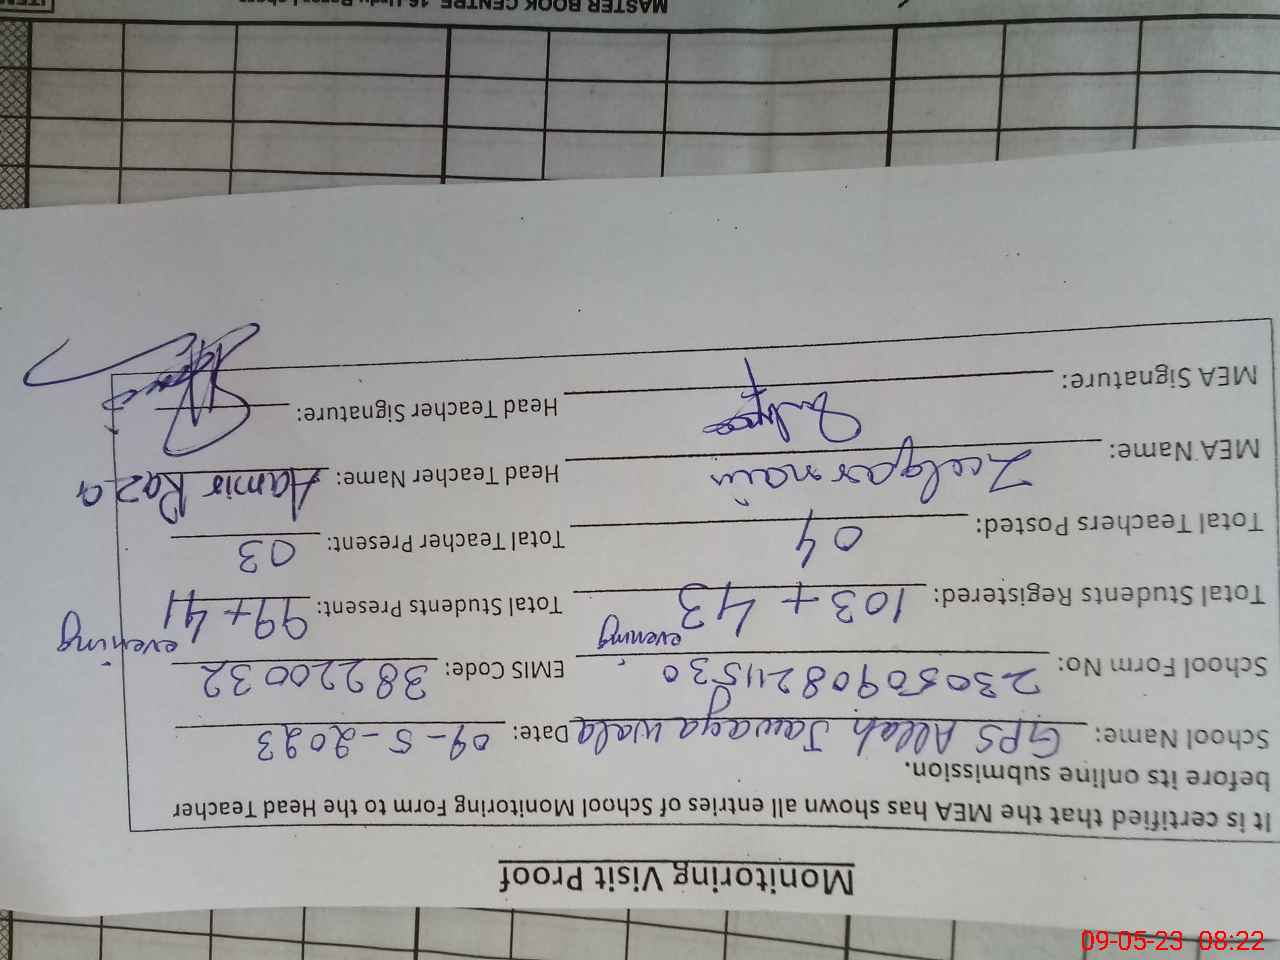 Monitoring Visit Proof
It is certified that the MEA has shown all entries of School Monitoring Form to the Head Teacher
before its online submission.
School Name: GPS Allah Jawaya wala Date: 09-5-2023
School Form No: 23050908241530 EMIS Code: 38220032
Total Students Registered: 103 + 43 evening Total Students Present: 99 + 41 evening
Total Teachers Posted: 04 Total Teacher Present: 03
MEA Name: Zulqarnain Head Teacher Name: Aamir Raza
MEA Signature: Head Teacher Signature:
MASTER BOOK CENTRE
09-05-23 08:22